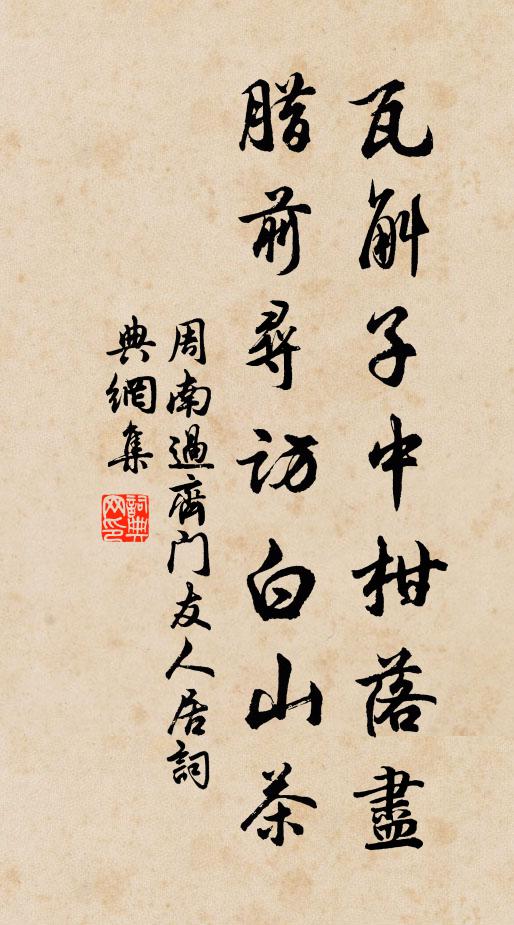 瓦斛子中柑落盡
腊前尋訪白山茶
周南過齊門友人居詞
典網集
詞典網印